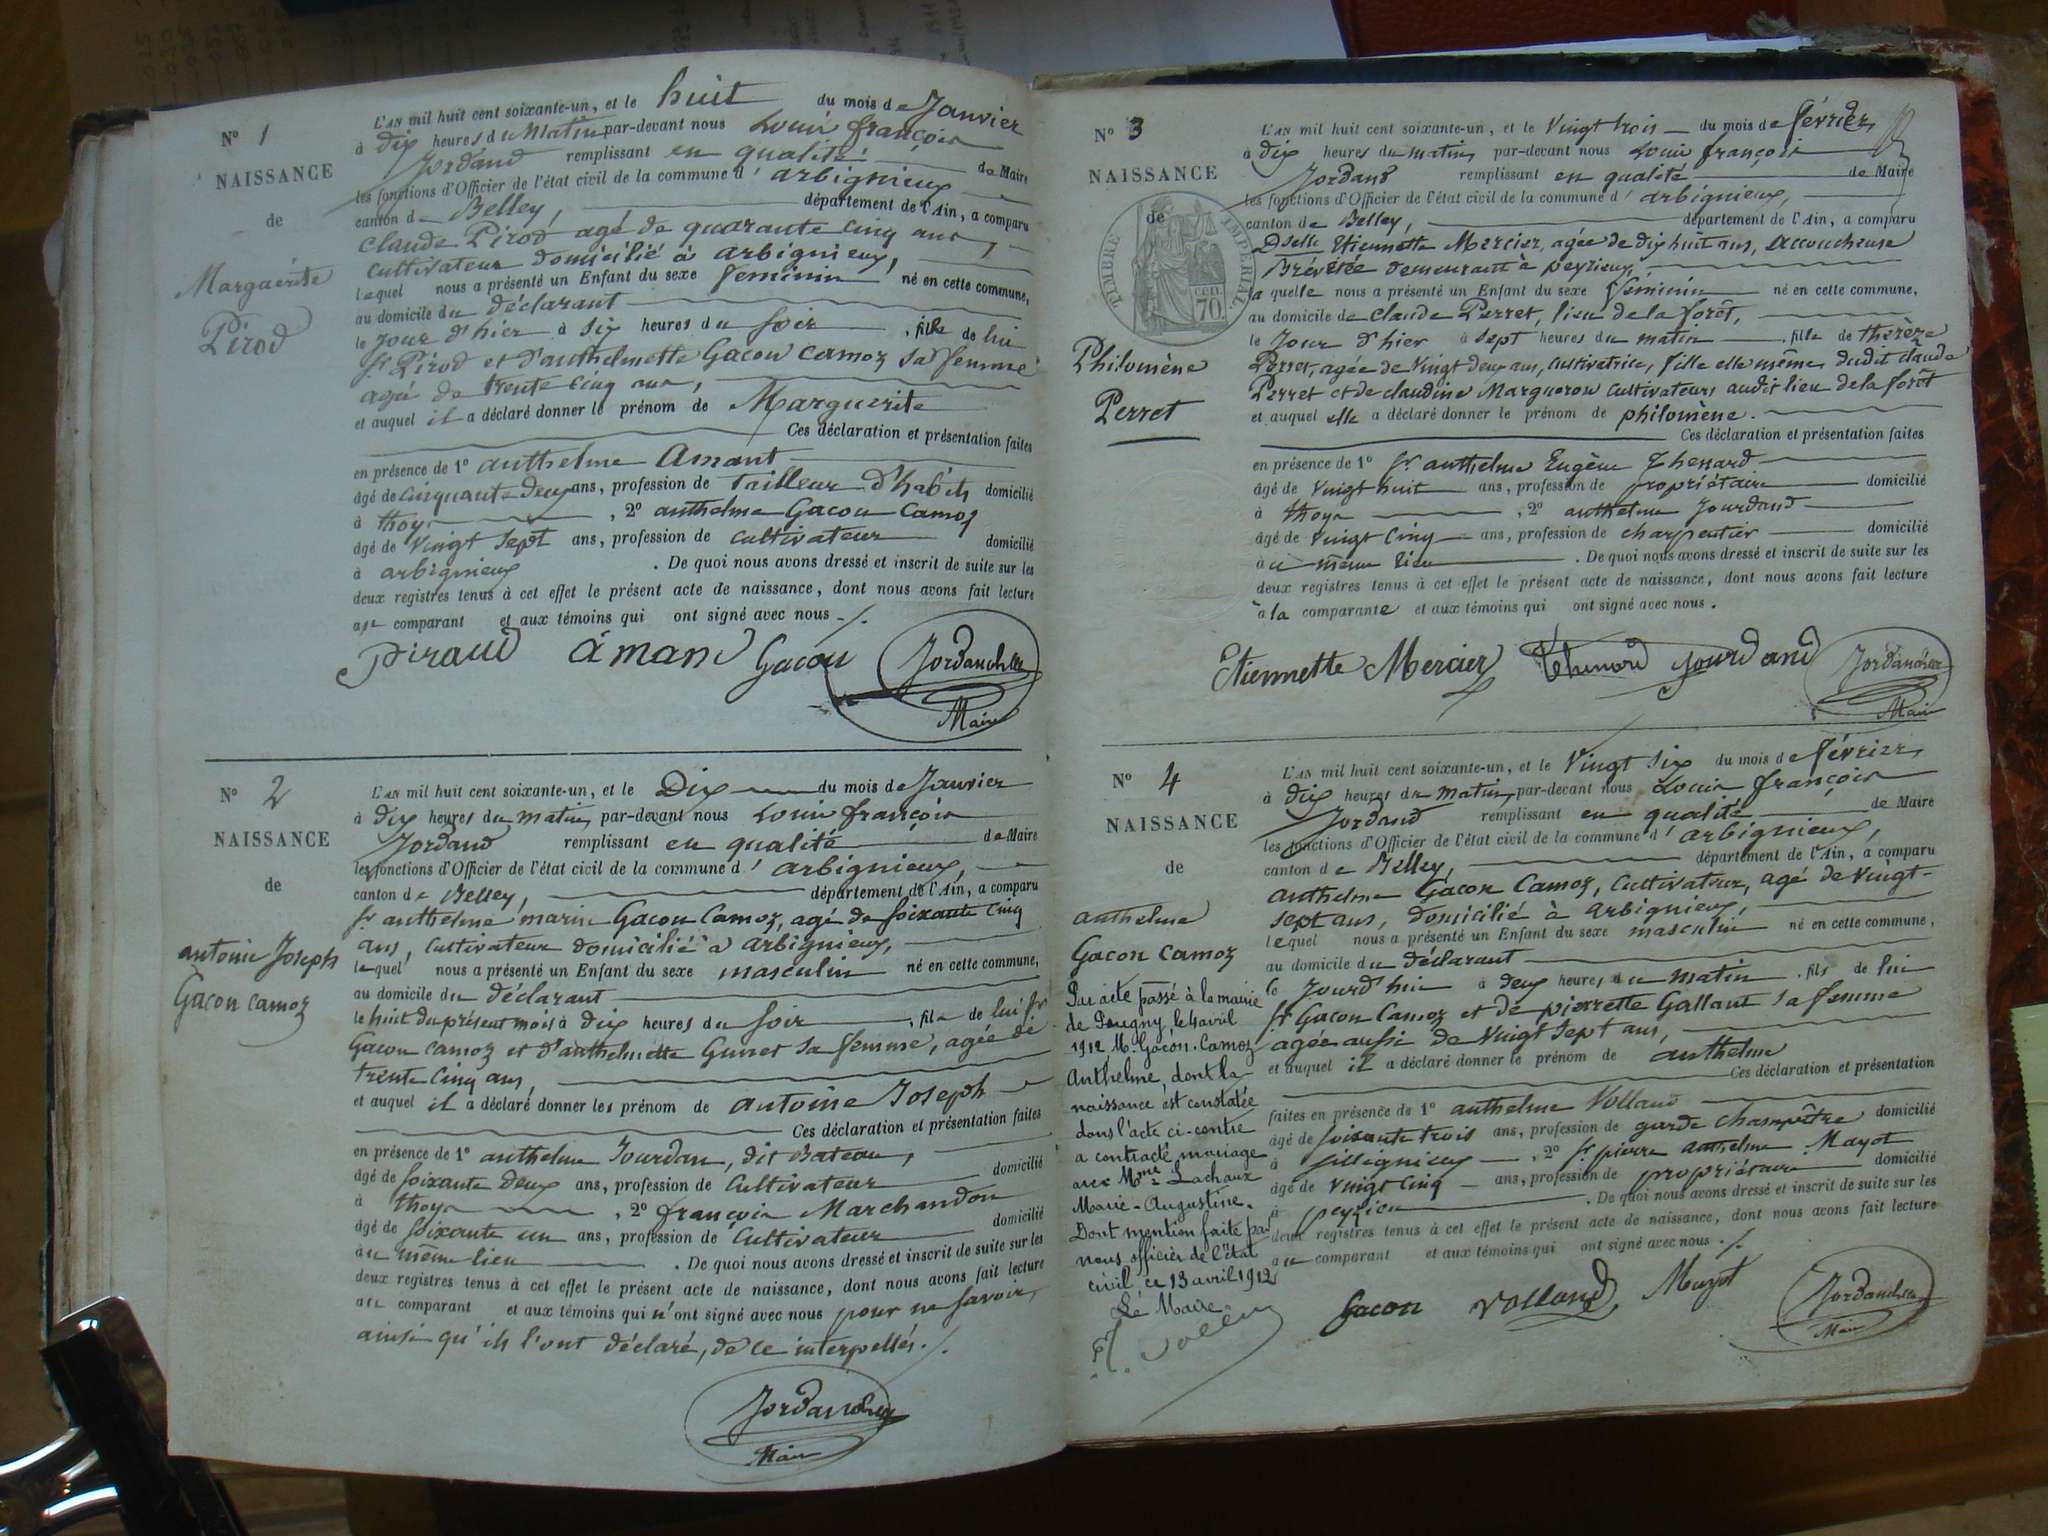 N° 1
NAISSANCE
de
Marguérite
Pirod
L'AN mil huit cent soixante-un, et le huit du mois de Janvier
à dix heures du matin par-devant nous Louis françois
Jordand remplissant en qualité de Maire
les fonctions d'Officier de l'état civil de la commune d' arbignieux
canton de Belley, département de l'Ain, a comparu
Claude Pirod agé de quarante cinq ans,
cultivateur domicilié à arbignieux,
lequel nous a présenté un Enfant du sexe féminin né en cette commune,
au domicile du déclarant
le jour d'hier à six heures du soir, fille de lui
sr Pirod et d'anthelmette Gacon Camoz sa femme
agée de trente cinq ans,
et auquel il a déclaré donner le prénom de Marguerite
Ces déclaration et présentation faites
en présence de 1° anthelme Amant
âgé de cinquante deux ans, profession de tailleur d'habits domicilié
à thoys, 2° anthelme Gacon Camoz
âgé de vingt sept ans, profession de cultivateur domicilié
à arbignieux. De quoi nous avons dressé et inscrit de suite sur les
deux registres tenus à cet effet le présent acte de naissance, dont nous avons fait lecture
au comparant et aux témoins qui ont signé avec nous ./.
Piraud aman Gacon Jordand
Maire
N° 2
NAISSANCE
de
antoine Joseph
Gacon camoz
L'AN mil huit cent soixante-un, et le Dix du mois de Janvier
à dix heures du matin, par-devant nous Louis françois
Jordand remplissant en qualité de Maire
les fonctions d'Officier de l'état civil de la commune d' arbignieux,
canton de Belley, département de l'Ain, a comparu
sr anthelme marin Gacon Camoz, agé de soixante cinq
ans, cultivateur domicilié à arbignieux,
lequel nous a présenté un Enfant du sexe masculin né en cette commune,
au domicile du déclarant
le huit du présent mois à dix heures du soir, fils de lui sr
Gacon camoz et d'anthelmette Gunet sa femme, agée de
trente cinq ans,
et auquel il a déclaré donner les prénom de antoine Joseph
Ces déclaration et présentation faites
en présence de 1° anthelme Jourdan, dit Bateau,
âgé de soixante deux ans, profession de cultivateur domicilié
à thoys, 2° françois Marchandon
âgé de soixante un ans, profession de cultivateur domicilié
au même lieu. De quoi nous avons dressé et inscrit de suite sur les
deux registres tenus à cet effet le présent acte de naissance, dont nous avons fait lecture
au comparant et aux témoins qui n'ont signé avec nous pour ne savoir,
ainsi qu'ils l'ont déclaré, de ce interpellés ./.
Jordand
Maire
N° 3
NAISSANCE
de
TIMBRE IMPÉRIAL
cen.
70.
Philomène
Perret
L'AN mil huit cent soixante-un, et le vingt trois du mois de février
à dix heures du matin, par-devant nous Louis françois
Jordand remplissant en qualité de Maire
les fonctions d'Officier de l'état civil de la commune d' arbignieux,
canton de Belley, département de l'Ain, a comparu
Dselle Etiennette Mercier, agée de dix huit ans, accoucheuse
Brévetée demeurant à peyrieux,
laquelle nous a présenté un Enfant du sexe féminin né en cette commune,
au domicile de claude Perret, lieu de la forêt,
le jour d'hier à sept heures du matin, fille de thérèze
Perret, agée de vingt deux ans, cultivatrice, fille elle même dudit claude
Perret et de claudine Margueron cultivateurs audit lieu de la forêt
et auquel elle a déclaré donner le prénom de philomène.
Ces déclaration et présentation faites
en présence de 1° sr anthelme Eugène Thenard
âgé de vingt huit ans, profession de propriétaire domicilié
à thoys, 2° anthelme Jourdand
âgé de vingt cinq ans, profession de charpentier domicilié
au même lieu. De quoi nous avons dressé et inscrit de suite sur les
deux registres tenus à cet effet le présent acte de naissance, dont nous avons fait lecture
à la comparante et aux témoins qui ont signé avec nous.
Etiennette Mercier Thenard Jourdand Jordand
Maire
N° 4
NAISSANCE
de
anthelme
Gacon camoz
Par acte passé à la mairie
de Pougny, le 4 avril
1912 M. Gacon-Camoz
Anthelme, dont la
naissance est constatée
dans l'acte ci-contre
a contracté mariage
avec Mme Lachaux
Marie-Augustine.
Dont mention faite par
nous officier de l'État
civil ce 13 avril 1912
Le Maire
L'AN mil huit cent soixante-un, et le vingt six du mois de février,
à dix heures du matin, par-devant nous Louis françois
Jordand remplissant en qualité de Maire
les fonctions d'Officier de l'état civil de la commune d' arbignieux,
canton de Belley, département de l'Ain, a comparu
anthelme Gacon Camoz, cultivateur, agé de vingt-
sept ans, domicilié à arbignieux,
lequel nous a présenté un Enfant du sexe masculin né en cette commune,
au domicile du déclarant
ce jourd'hui à deux heures du matin, fils de lui
sr Gacon Camoz et de pierrette Gallant sa femme
agée aussi de vingt sept ans,
et auquel il a déclaré donner le prénom de anthelme
Ces déclaration et présentation
faites en présence de 1° anthelme Volland
âgé de soixante trois ans, profession de garde champêtre domicilié
à sillignieux, 2° sr pierre anthelme Mayot
âgé de vingt cinq ans, profession de propriétaire domicilié
à peyzieu. De quoi nous avons dressé et inscrit de suite sur les
deux registres tenus à cet effet le présent acte de naissance, dont nous avons fait lecture
au comparant et aux témoins qui ont signé avec nous ./.
Gacon Volland Mayot Jordand
Maire